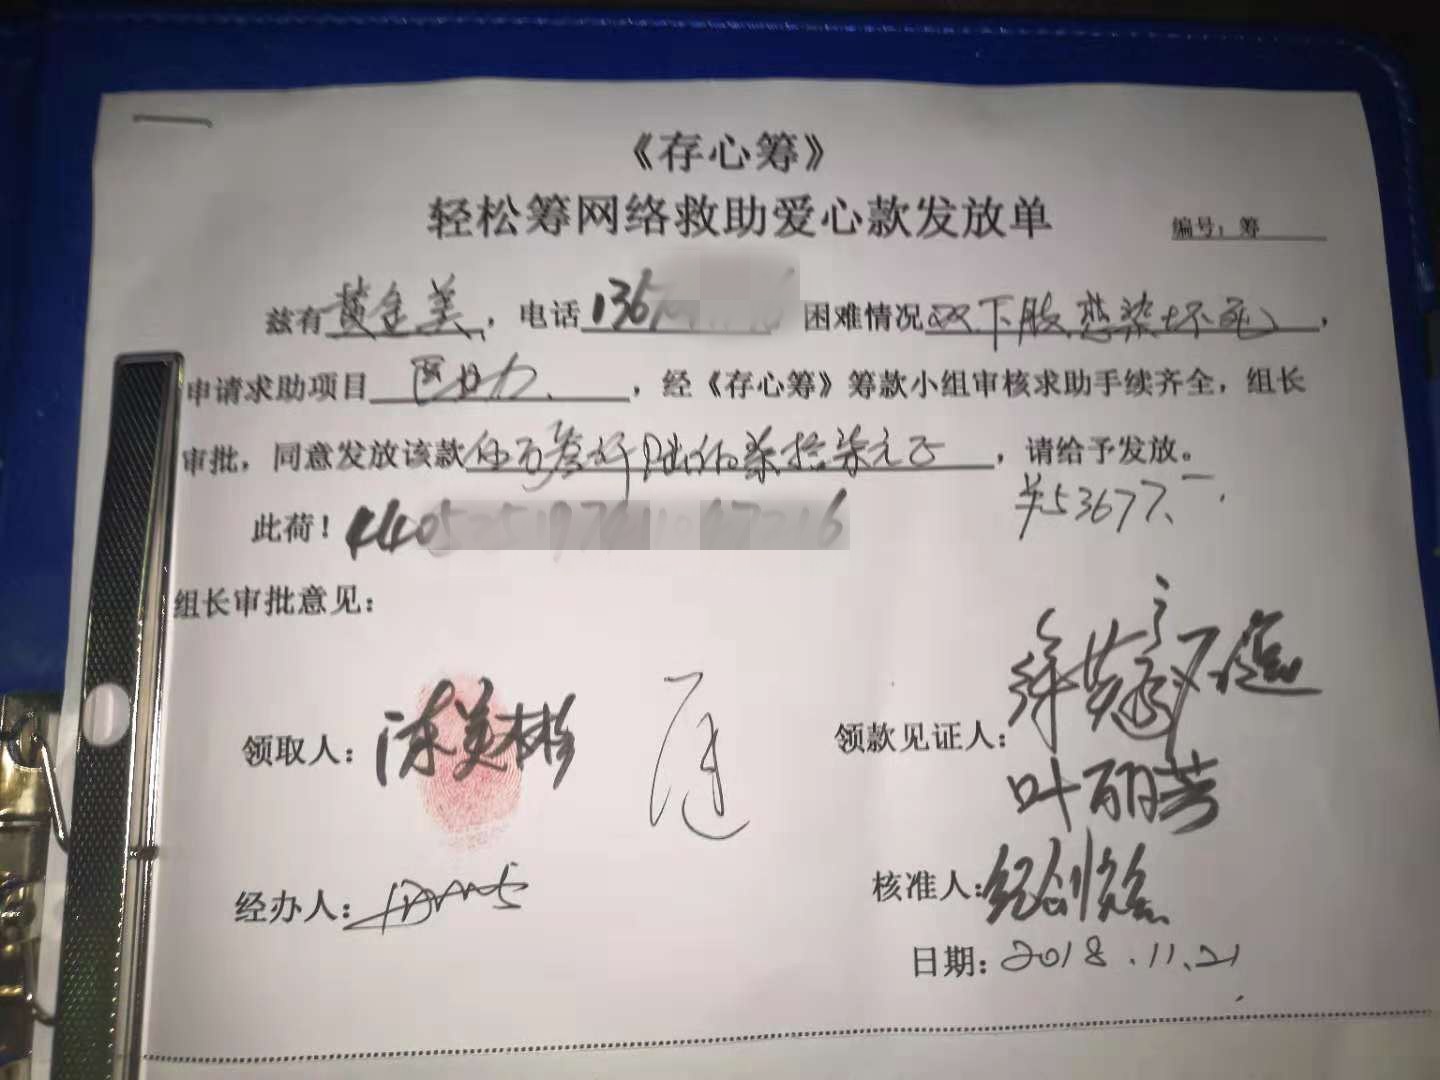 《存心筹》
轻松筹网络救助爱心款发放单
编号：筹
兹有黄金美，电话 困难情况双下肢感染坏死，
申请求助项目医助，经《存心筹》筹款小组审核求助手续齐全，组长
审批，同意发放该款伍万叁仟陆佰柒拾柒元正，请给予发放。
¥53677.一
此荷！
组长审批意见：
领取人：陈美彬
领款见证人：
叶丽芳
经办人：
核准人：
日期：2018.11.21